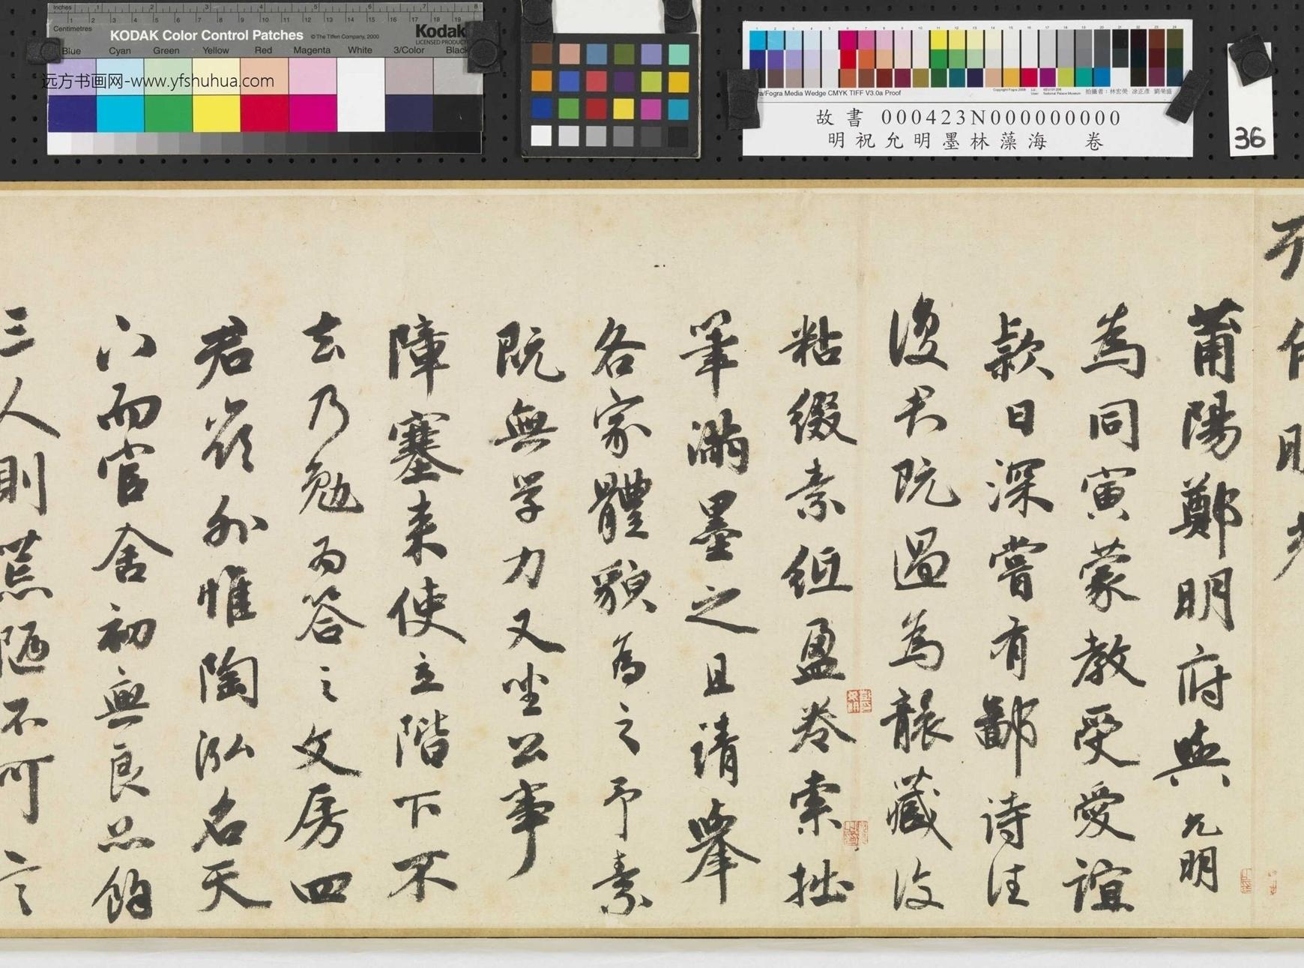 Inches 1 2 3 4 5 6 7 8
Centimetres
KODAK Color Control Patches © The Tiffen Company, 2000 Kodak
LICENSED PRODUCT
Blue Cyan Green Yellow Red Magenta White 3/Color Black
远方书画网-www.yfshuhua.com
/Fogra Media Wedge CMYK TIFF V3.0a Proof
故書 000423N000000000
明祝允明墨林藻海 卷
36
莆陽鄭明府與允明
為同寅蒙教受愛誼
款日深嘗有鄙詩往
復君既過為襲藏後
粘綴素紙盈卷索拙
筆滿墨之且請舉
各家體貌為之予素
既無學力又坐公事
障塞来使立階下不
去乃勉而答之文房四
君穎外惟陶泓名天
下而官舍初無良品餘
三人則荒陋不可言